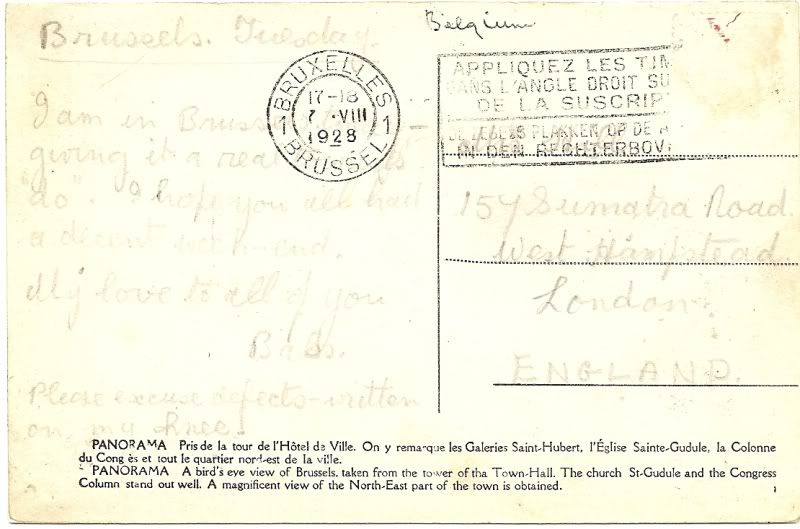 Belgium
Brussels. Tuesday.
BRUXELLES
17-18
7 VIII
1 1928 1
BRUSSEL
APPLIQUEZ LES TIM
DANS L'ANGLE DROIT SU
DE LA SUSCRIP
PLAKKEN OP DE
IN DEN RECHTERBOV
I am in Brussels
giving it a real
"do". I hope you all had
a decent week-end.
My love to all of you
Babs.
Please excuse defects-written
on my knee.
157 Sumatra Road
West Hampstead
London.
ENGLAND.
PANORAMA Pris de la tour de l'Hôtel de Ville. On y remarque les Galeries Saint-Hubert, l'Église Sainte-Gudule, la Colonne
du Congrès et tout le quartier nord-est de la ville.
PANORAMA A bird's eye view of Brussels, taken from the tower of tha Town-Hall. The church St-Gudule and the Congress
Column stand out well. A magnificent view of the North-East part of the town is obtained.